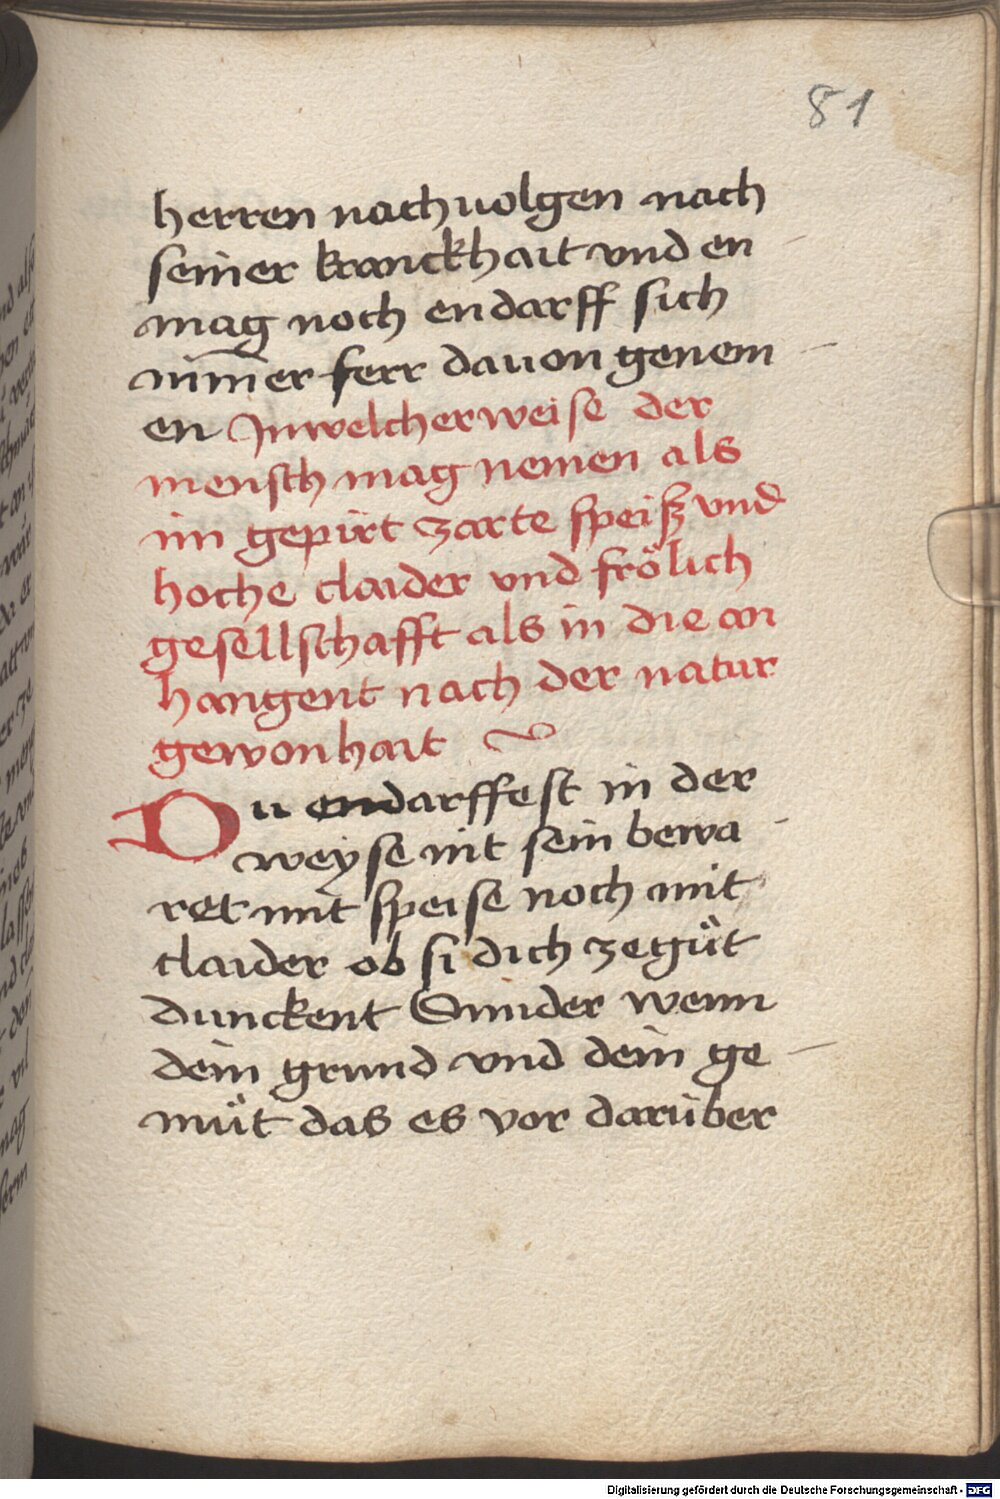 81
herren nach uolgen nach
seiner kranckhait vnd en
mag noch en darff sich
nim̄er ferr dauon genem
en Jn welcher weise der
mensch mag nemen als
im gepürt zarte speiß vnd
hoche claider vnd frölich
gesellschafft als in die an
hangent nach der natur
gewonhait
Du endarffest in der
weyse nit sein bewa
ret mit speise noch mit
claider ob si dich ze gůt
dunckent Sunder wenn
dein grund vnd dein ge
můt das es vor darüber
Digitalisierung gefördert durch die Deutsche Forschungsgemeinschaft - DFG